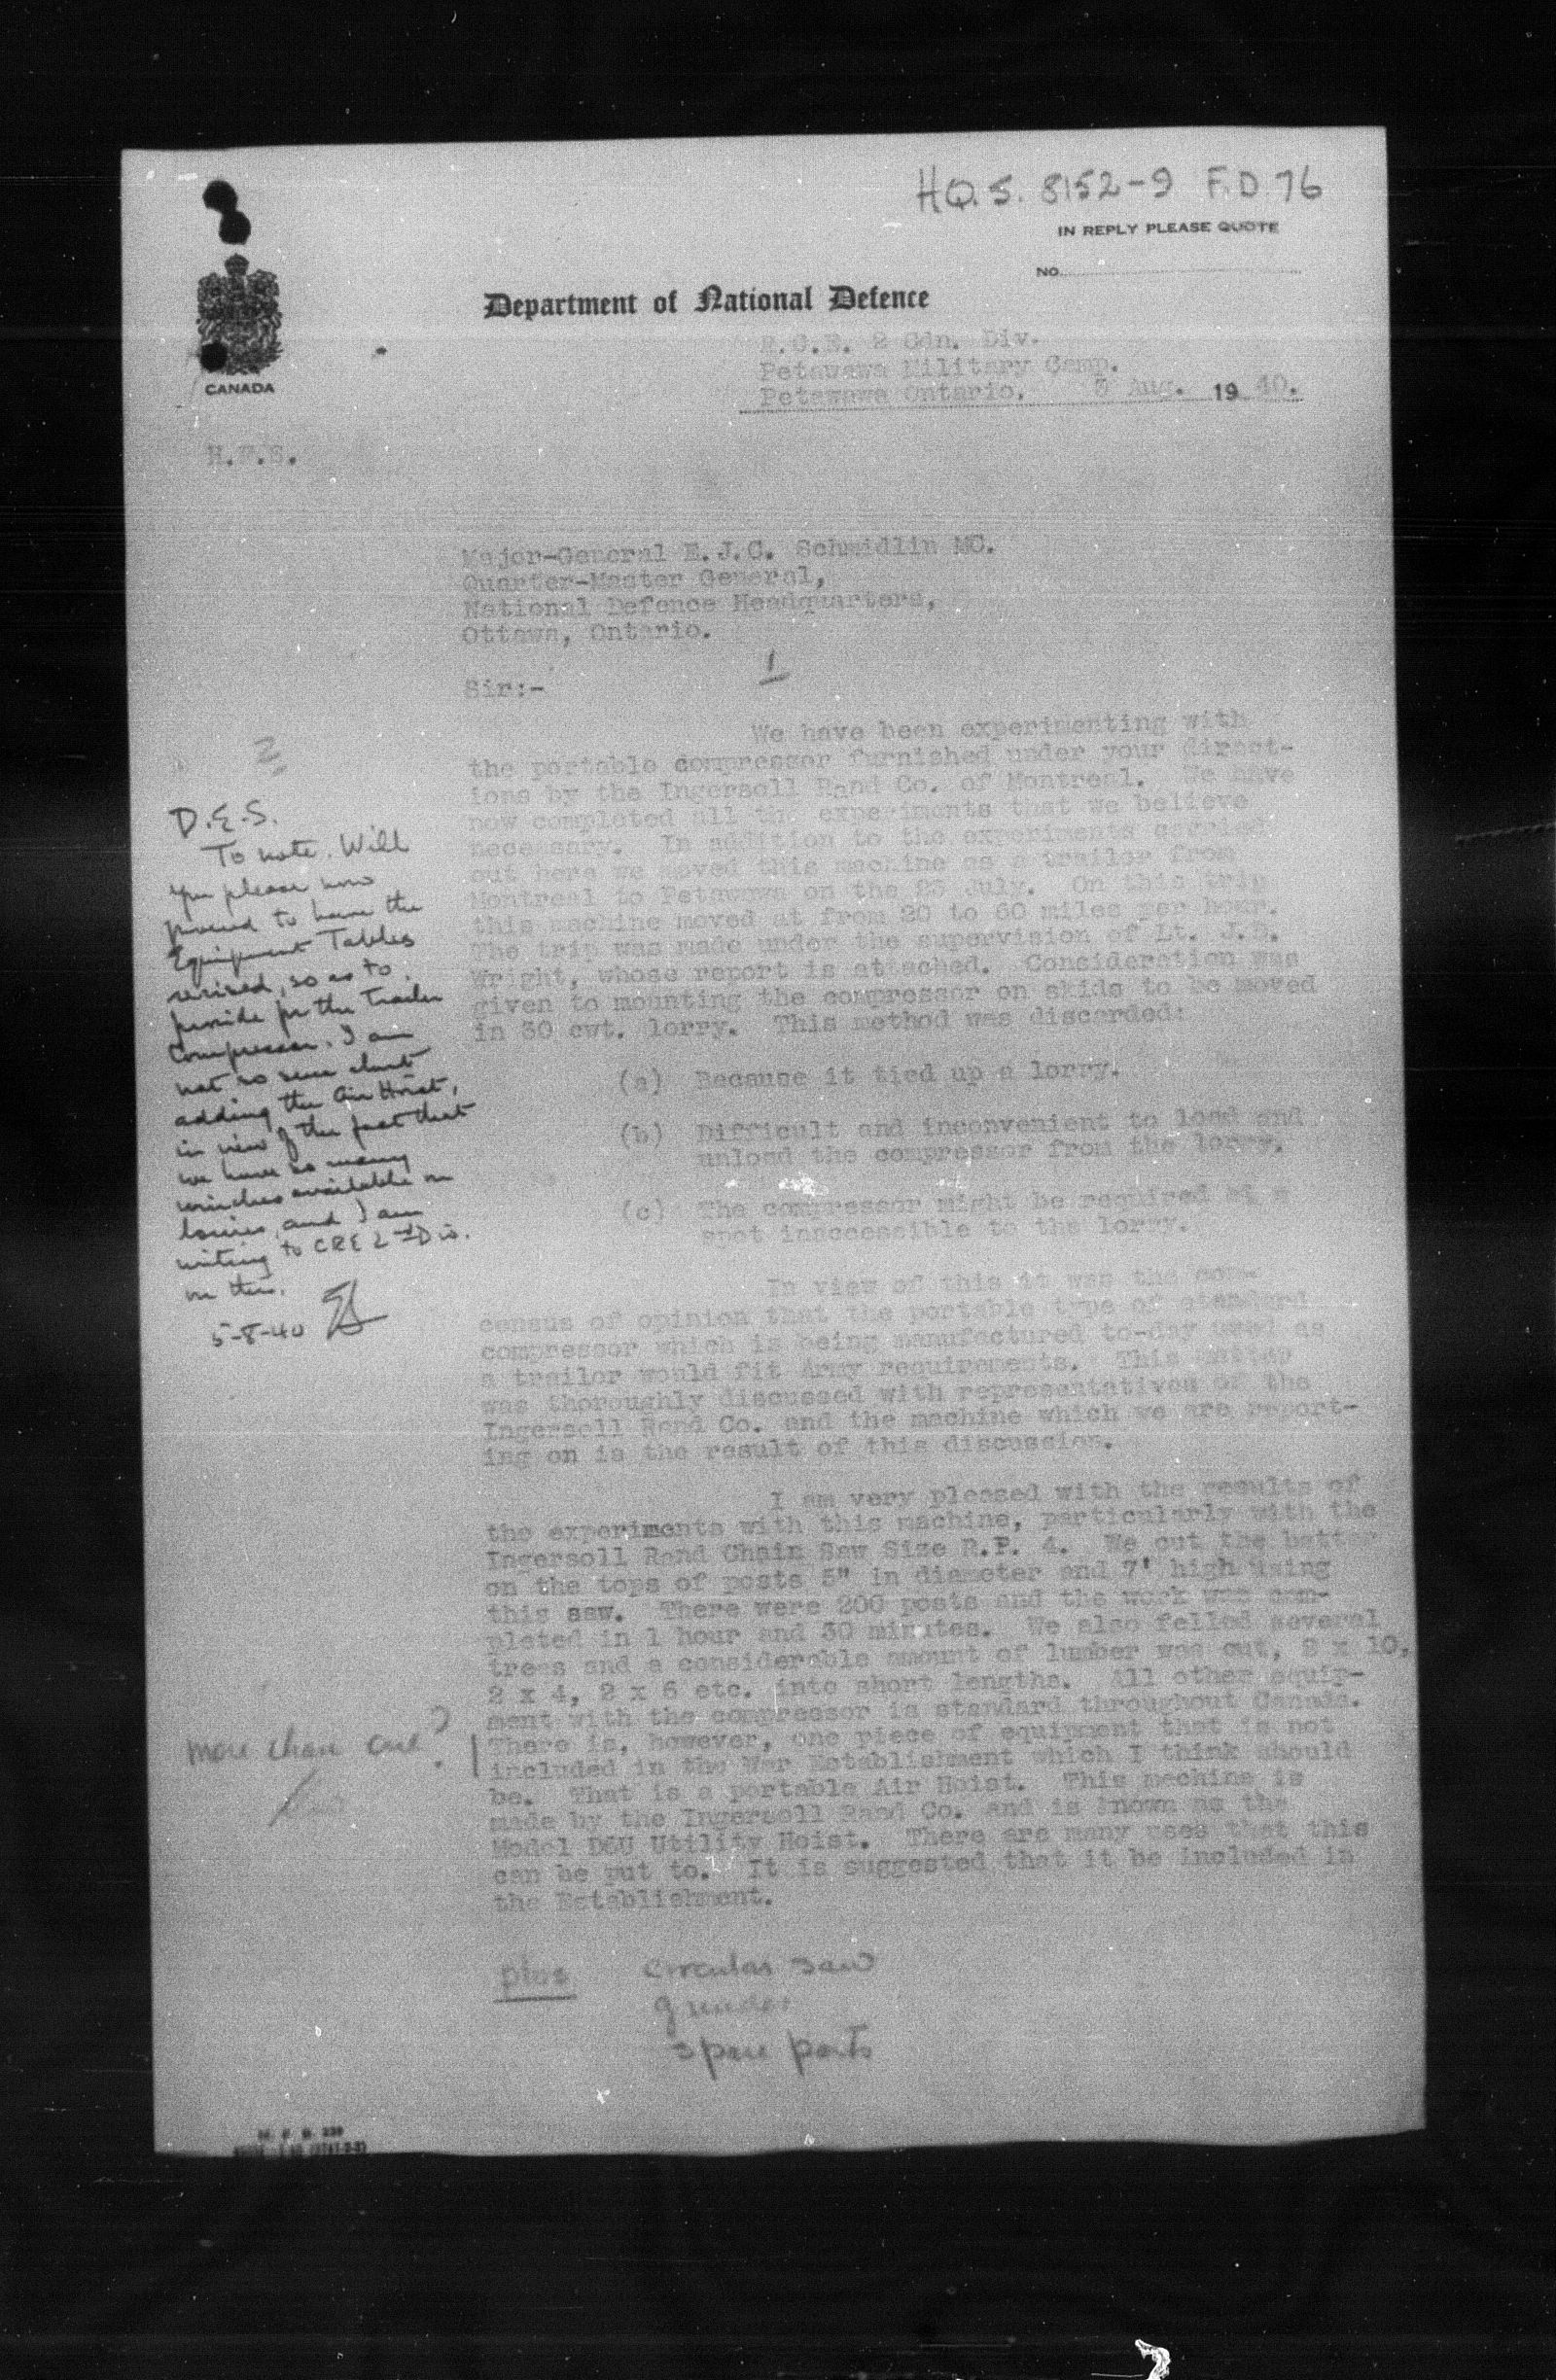 HQ.S. 8152-9 F.D. 76
IN REPLY PLEASE QUOTE
NO.
Department of National Defence
CANADA
R.C.E. 2 Cdn. Div.
Petawawa Military Camp.
Petawawa Ontario. 3 Aug. 19 40.
Major-General E.J.C. Schmidlin MC.
Quarter-Master General,
National Defence Headquarters,
Ottawa, Ontario.
1
Sir:-
We have been experimenting with
the portable compressor furnished under your direct-
ions by the Ingersoll Rand Co. of Montreal. We have
now completed all the experiments that we believe
necessary. In addition to the experiments carried
out here we moved this machine as a trailer from
Montreal to Petawawa on the 23 July. On this trip
this machine moved at from 20 to 60 miles per hour.
The trip was made under the supervision of Lt. J.D.
Wright, whose report is attached. Consideration was
given to mounting the compressor on skids to be moved
in 30 cwt. lorry. This method was discarded:
(a) Because it tied up a lorry.
(b) Difficult and inconvenient to load and
unload the compressor from the lorry.
(c) The compressor might be required at a
spot inaccessible to the lorry.
In view of this it was the con-
census of opinion that the portable type of standard
compressor which is being manufactured to-day used as
a trailor would fit Army requirements. This matter
was thoroughly discussed with representatives of the
Ingersoll Rand Co. and the machine which we are report-
ing on is the result of this discussion.
I am very pleased with the results of
the experiments with this machine, particularly with the
Ingersoll Rand Chain Saw Size R.P. 4. We cut the batter
on the tops of posts 5" in diameter and 7' high using
this saw. There were 200 posts and the work was com-
pleted in 1 hour and 30 minutes. We also felled several
trees and a considerable amount of lumber was cut, 2 x 10,
2 x 4, 2 x 6 etc. into short lengths. All other equip-
ment with the compressor is standard throughout Canada.
There is, however, one piece of equipment that is not
included in the War Establishment which I think should
be. That is a portable Air Hoist. This machine is
made by the Ingersoll Rand Co. and is known as the
Model D6U Utility Hoist. There are many uses that this
can be put to. It is suggested that it be included in
the Establishment.
2.
D.E.S.
To note. Will
you please now
proceed to have the
Equipment Tables
revised, so as to
provide for the Trailer
Compressor. I am
not so sure about
adding the Air Hoist,
in view of the fact that
we have so many
winches available on
lorries, and I am
writing to CRE 2nd Div.
on this.
5-8-40
more than one?
plus circular saw
grinder
spare parts
M. F. B. 239